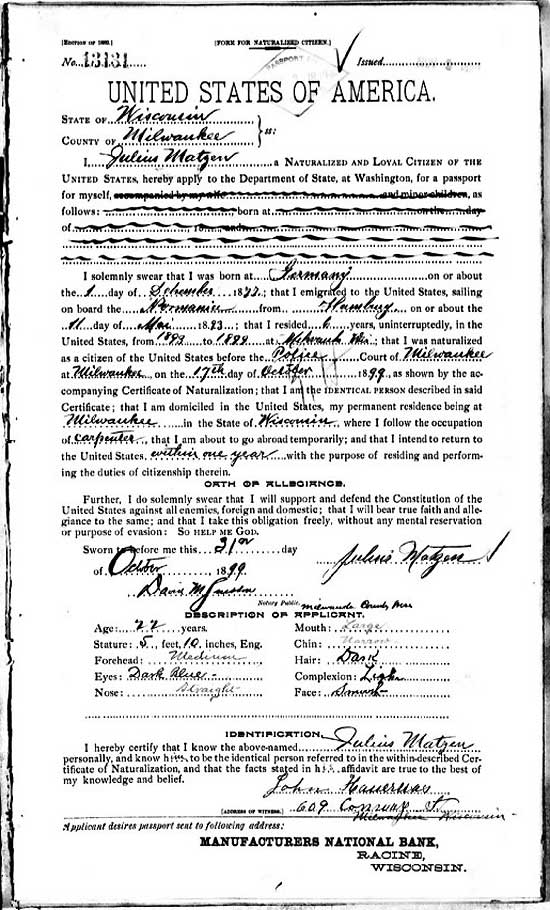 [EDITION OF 1899.] [FORM FOR NATURALIZED CITIZEN.]
No. 13131 Issued
PASSPORT
UNITED STATES OF AMERICA.
STATE OF Wisconsin
COUNTY OF Milwaukee } ss:
I, Julius Matzen a NATURALIZED AND LOYAL CITIZEN OF THE
UNITED STATES, hereby apply to the Department of State, at Washington, for a passport
for myself, accompanied by my wife and minor children, as
follows: born at on the day
of 18 and
I solemnly swear that I was born at Germany on or about
the 1 day of 1877; that I emigrated to the United States, sailing
on board the Normania from Hamburg on or about the
11 day of Mai 1893; that I resided 6 years, uninterruptedly, in the
United States, from 1893 to 1899 at Milwaukee Wis; that I was naturalized
as a citizen of the United States before the Police Court of Milwaukee
at Milwaukee, on the 17th day of October 1899, as shown by the ac-
companying Certificate of Naturalization; that I am the IDENTICAL PERSON described in said
Certificate; that I am domiciled in the United States, my permanent residence being at
Milwaukee in the State of Wisconsin, where I follow the occupation
of carpenter, that I am about to go abroad temporarily; and that I intend to return to
the United States, within one year with the purpose of residing and perform-
ing the duties of citizenship therein.
OATH OF ALLEGIANCE.
Further, I do solemnly swear that I will support and defend the Constitution of the
United States against all enemies, foreign and domestic; that I will bear true faith and alle-
giance to the same; and that I take this obligation freely, without any mental reservation
or purpose of evasion: SO HELP ME GOD.
Sworn to before me this 31st day
of October, 1899 Julius Matzen
David M
Notary Public. Milwaukee County Wis
DESCRIPTION OF APPLICANT.
Age: 22 years. Mouth: Large
Stature: 5, feet, 10 inches, Eng. Chin: Narrow
Forehead: Medium Hair: Dark
Eyes: Dark Blue Complexion: Light
Nose: Straight Face: Smooth
IDENTIFICATION.
I hereby certify that I know the above-named Julius Matzen
personally, and know him, to be the identical person referred to in the within-described Cer-
tificate of Naturalization, and that the facts stated in his affidavit are true to the best of
my knowledge and belief.
John
[ADDRESS OF WITNESS.] 609
Milwaukee Wisconsin
Applicant desires passport sent to following address:
MANUFACTURERS NATIONAL BANK,
RACINE,
WISCONSIN.